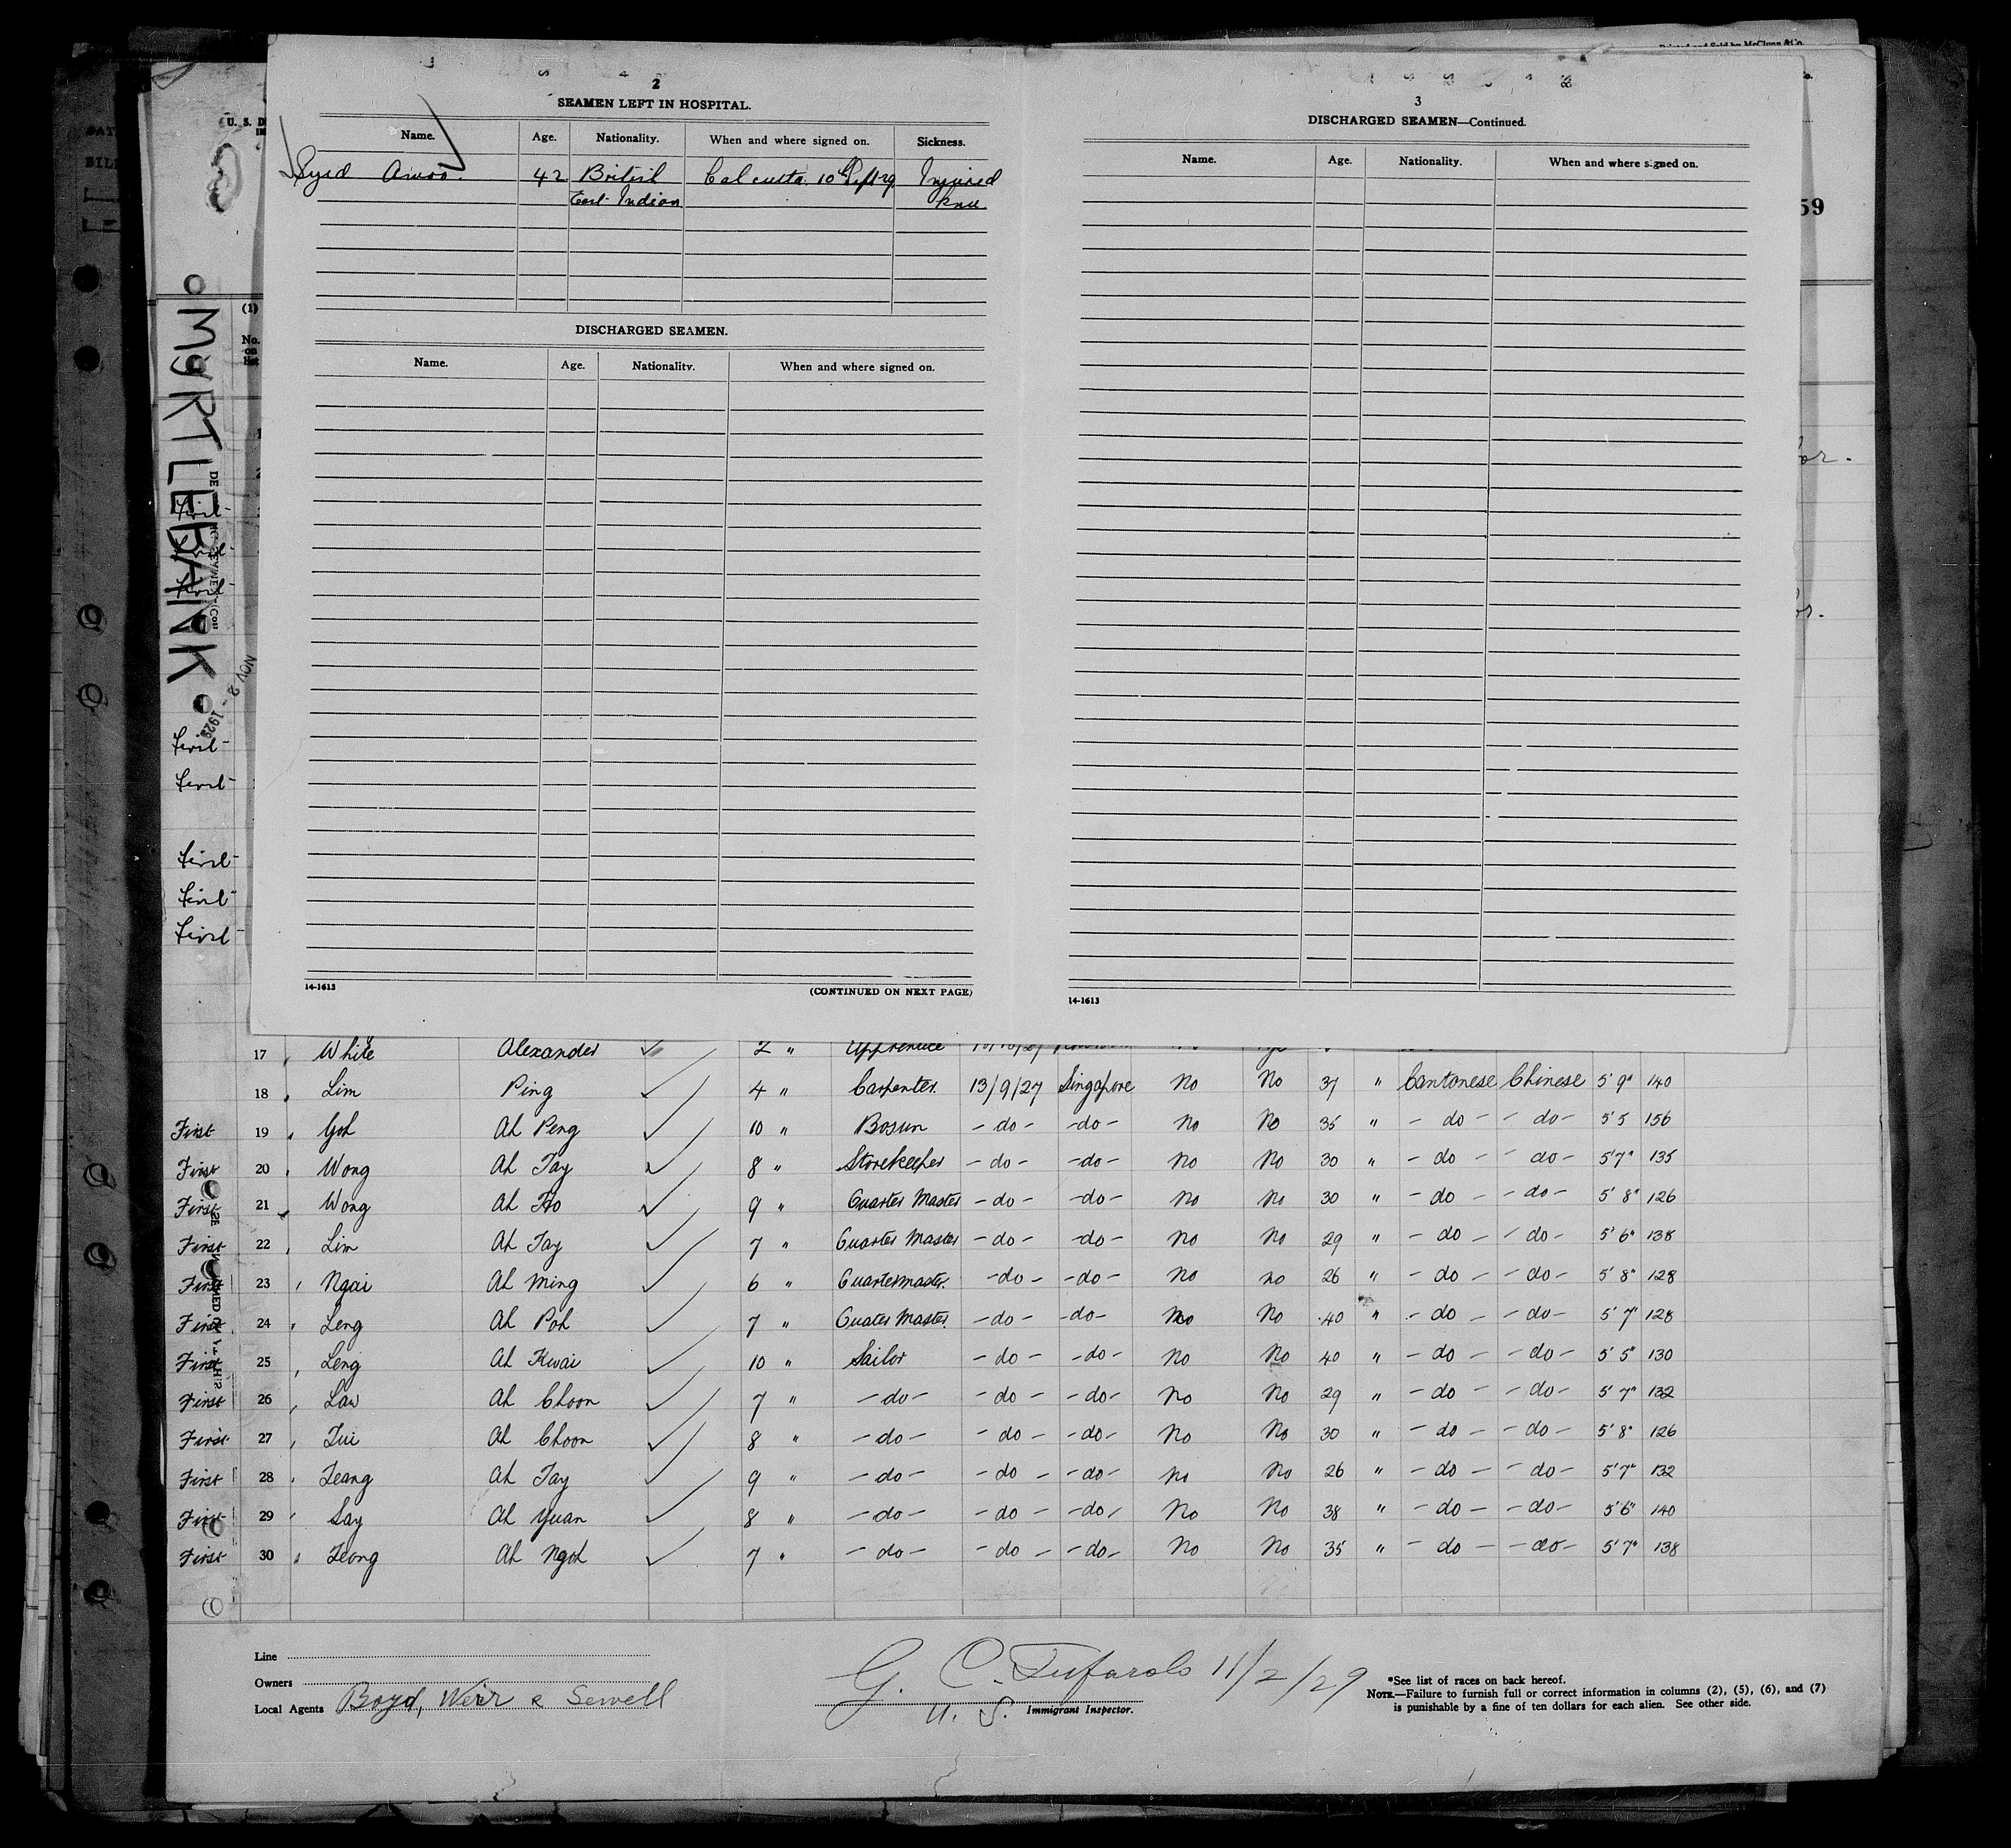 2
SEAMEN LEFT IN HOSPITAL.
Name. Age. Nationality. When and where signed on. Sickness.
Syed 42 British Calcutta. 10th Sept 29 Injured
East Indian knee
DISCHARGED SEAMEN.
Name. Age. Nationality. When and where signed on.
14-1613 (CONTINUED ON NEXT PAGE)
3
DISCHARGED SEAMEN—Continued.
Name. Age. Nationality. When and where signed on.
14-1613
U. S. D
59
(1)
No. on list
MYRTLEBANK
NOV 2 - 1929
17 White Alexander 2 " Apprentice
18 Lim Ping 4 " Carpenter. 13/9/27 Singapore No No 37 " Cantonese Chinese 5' 9" 140
First 19 Goh Ah Peng 10 " Bosun - do - - do - No No 35 " - do - - do - 5' 5 156
First 20 Wong Ah Tay 8 " Storekeeper - do - - do - No No 30 " - do - - do - 5' 7" 135
First 21 Wong Ah 9 " Quarter Master - do - - do - No No 30 " - do - - do - 5' 8" 126
First 22 Lim Ah Tay 7 " Quarter Master - do - - do - No No 29 " - do - - do - 5' 6" 138
First 23 Ngai Ah Ming 6 " Quartermaster. - do - - do - No No 26 " - do - - do - 5' 8" 128
First 24 Leng Ah Poh 7 " Quater Master. - do - - do - No No 40 " - do - - do - 5' 7" 128
First 25 Leng Ah Kwai 10 " Sailor - do - - do - No No 40 " - do - - do - 5' 5" 130
First 26 Law Ah Choon 7 " - do - - do - - do - No No 29 " - do - - do - 5' 7" 132
First 27 Lui Ah Choon 8 " - do - - do - - do - No No 30 " - do - - do - 5' 8" 126
First 28 Teang Ah Tay 9 " - do - - do - - do - No No 26 " - do - - do - 5' 7" 132
First 29 Say Ah Yuan 8 " - do - - do - - do - No No 38 " - do - - do - 5' 6" 140
First 30 Teong Ah Ngoh 7 " - do - - do - - do - No No 35 " - do - - do - 5' 7" 138
Line
Owners
Local Agents Boyd, Weir & Sewell
G. C. Tufarolo 11/2/29
U. S. Immigrant Inspector.
*See list of races on back hereof.
NOTE.—Failure to furnish full or correct information in columns (2), (5), (6), and (7)
is punishable by a fine of ten dollars for each alien. See other side.